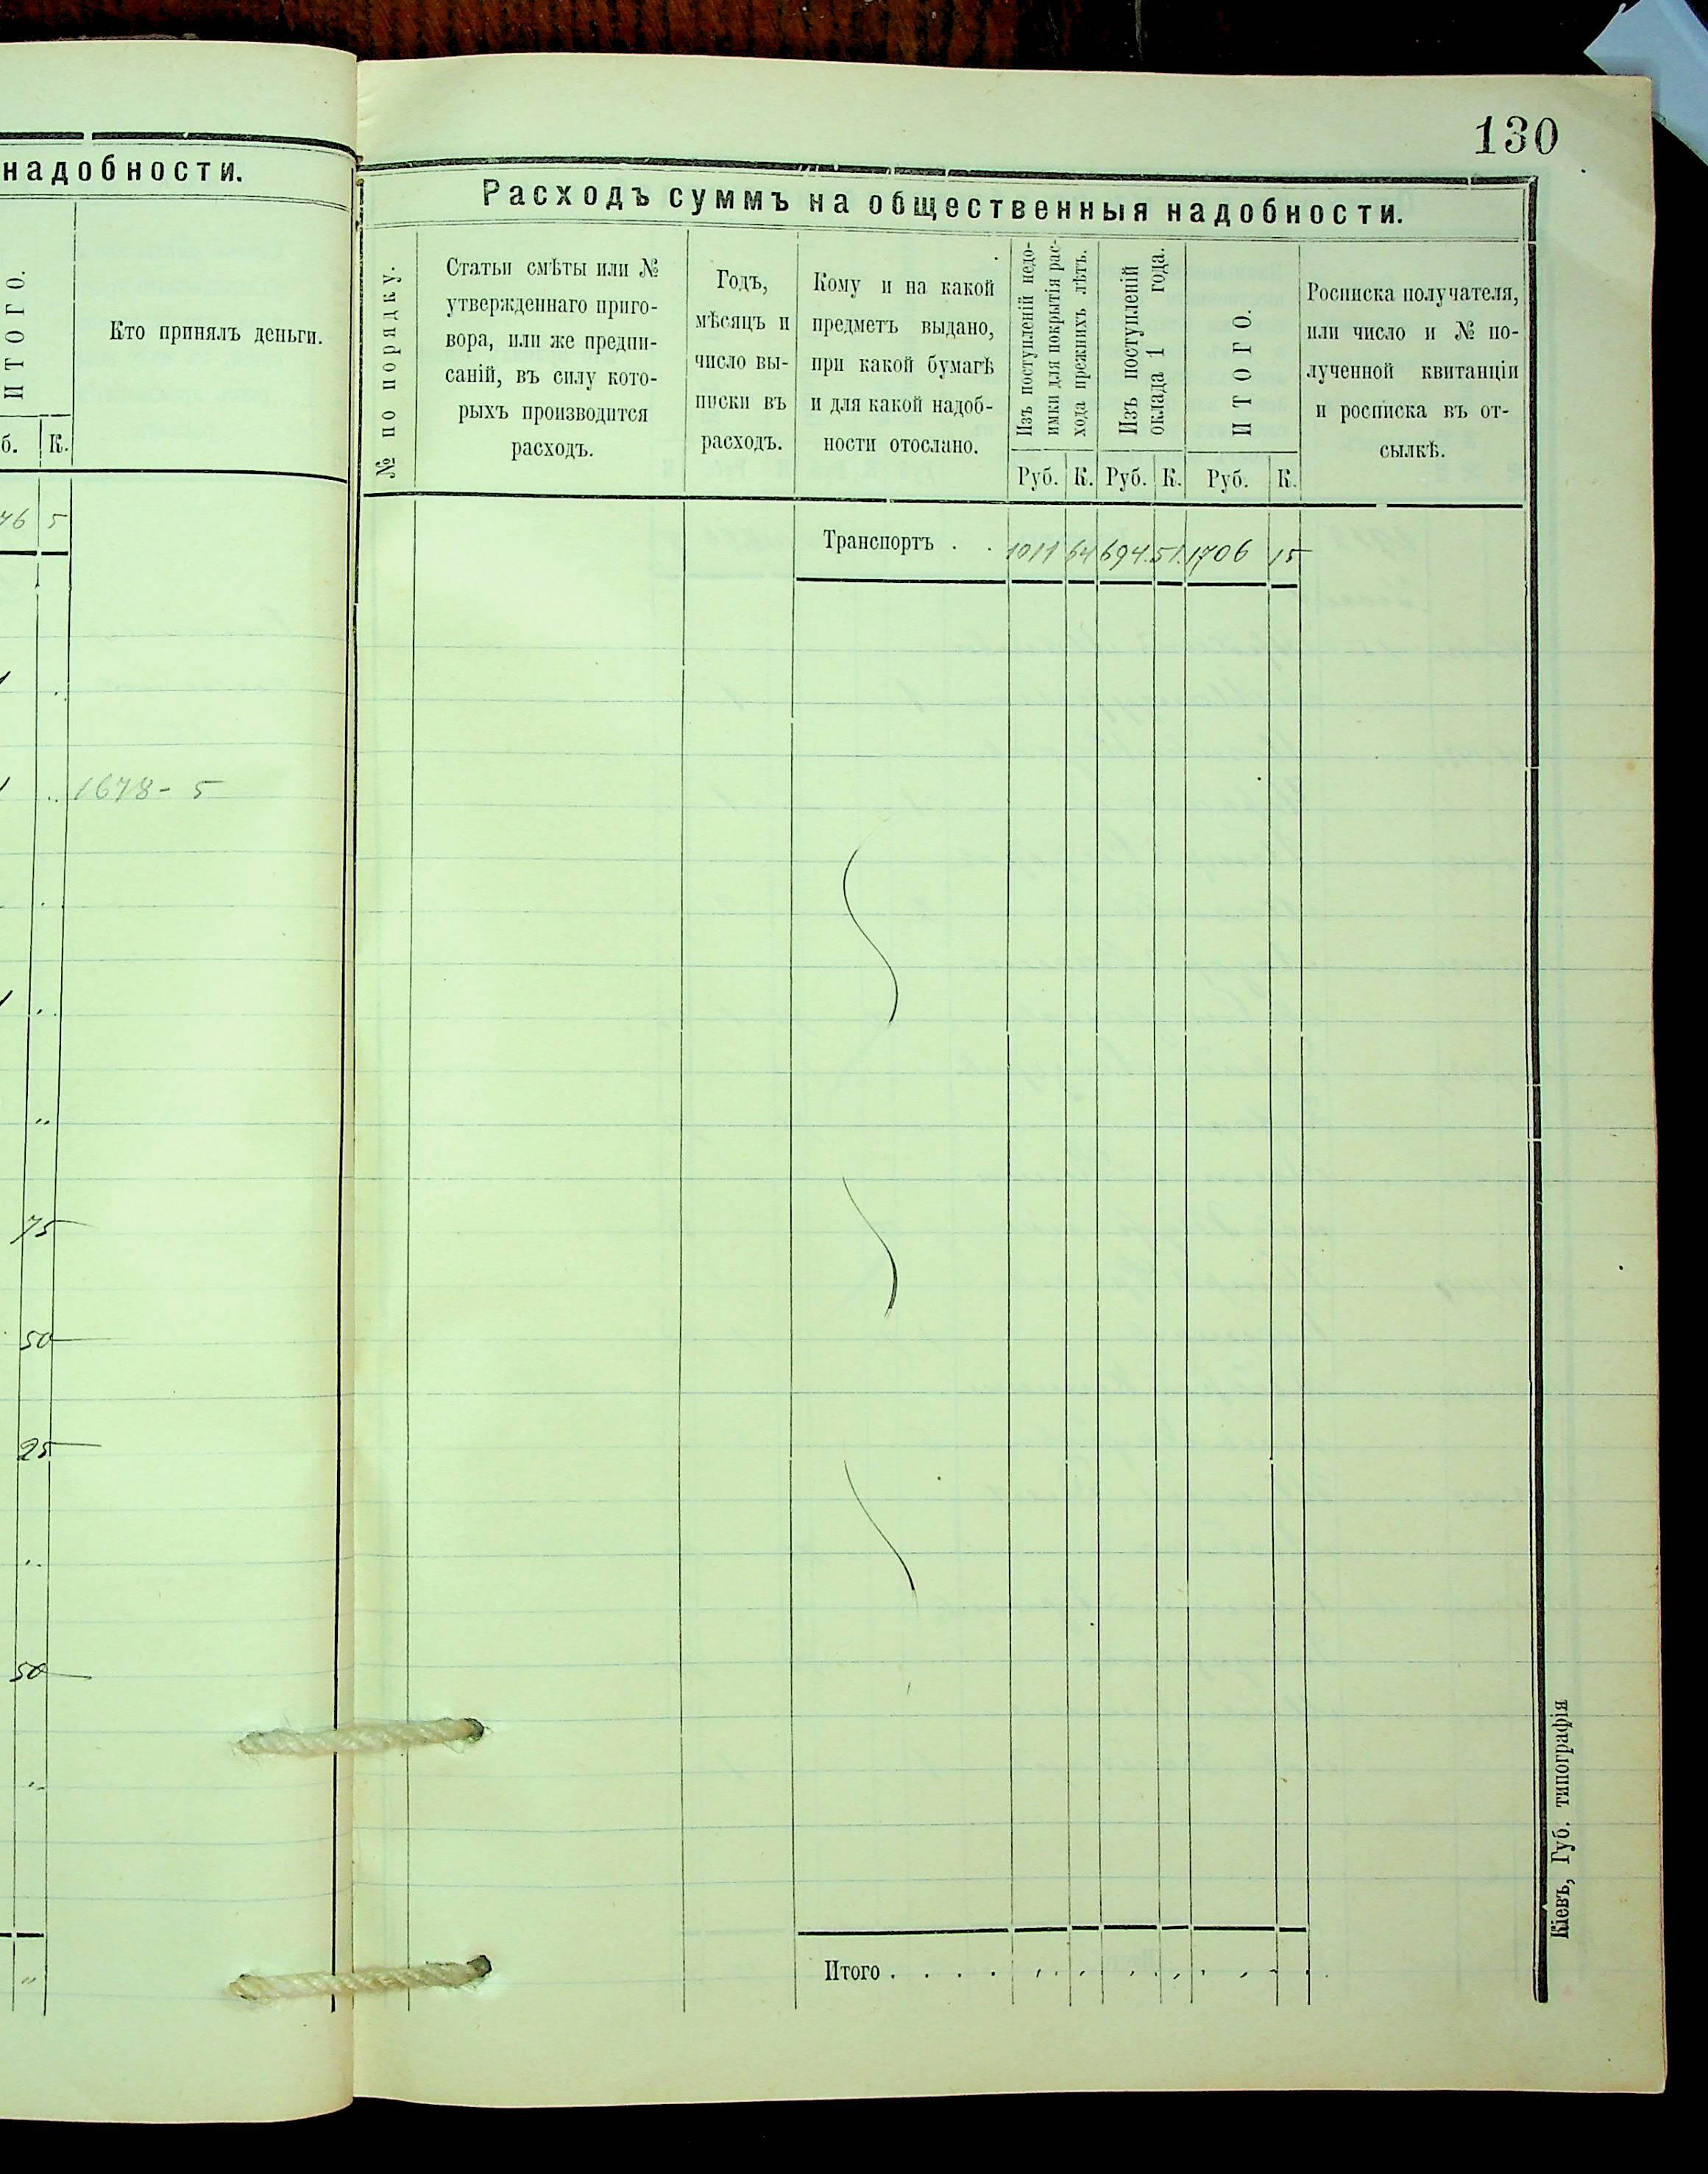 надобности.
ИТОГО.
Кто принялъ деньги.
б. К.
76 5
1678 - 5
75
50
25
50
130
Расходъ суммъ на общественныя надобности.
№ по порядку.
Статьи смѣты или №
утвержденнаго приго-
вора, или же предпи-
саній, въ силу кото-
рыхъ производится
расходъ.
Годъ,
мѣсяцъ и
число вы-
писки въ
расходъ.
Кому и на какой
предметъ выдано,
при какой бумагѣ
и для какой надоб-
ности отослано.
Изъ поступленій недо-
имки для покрытія рас-
хода прежнихъ лѣтъ.
Изъ поступленій
оклада 1 года.
ИТОГО.
Росписка получателя,
или число и № по-
лученной квитанціи
и росписка въ от-
сылкѣ.
Руб. К. Руб. К. Руб. К.
Транспортъ . . 1011 64 694 51 1706 15
Итого . . . .
Кіевъ, Губ. типографія